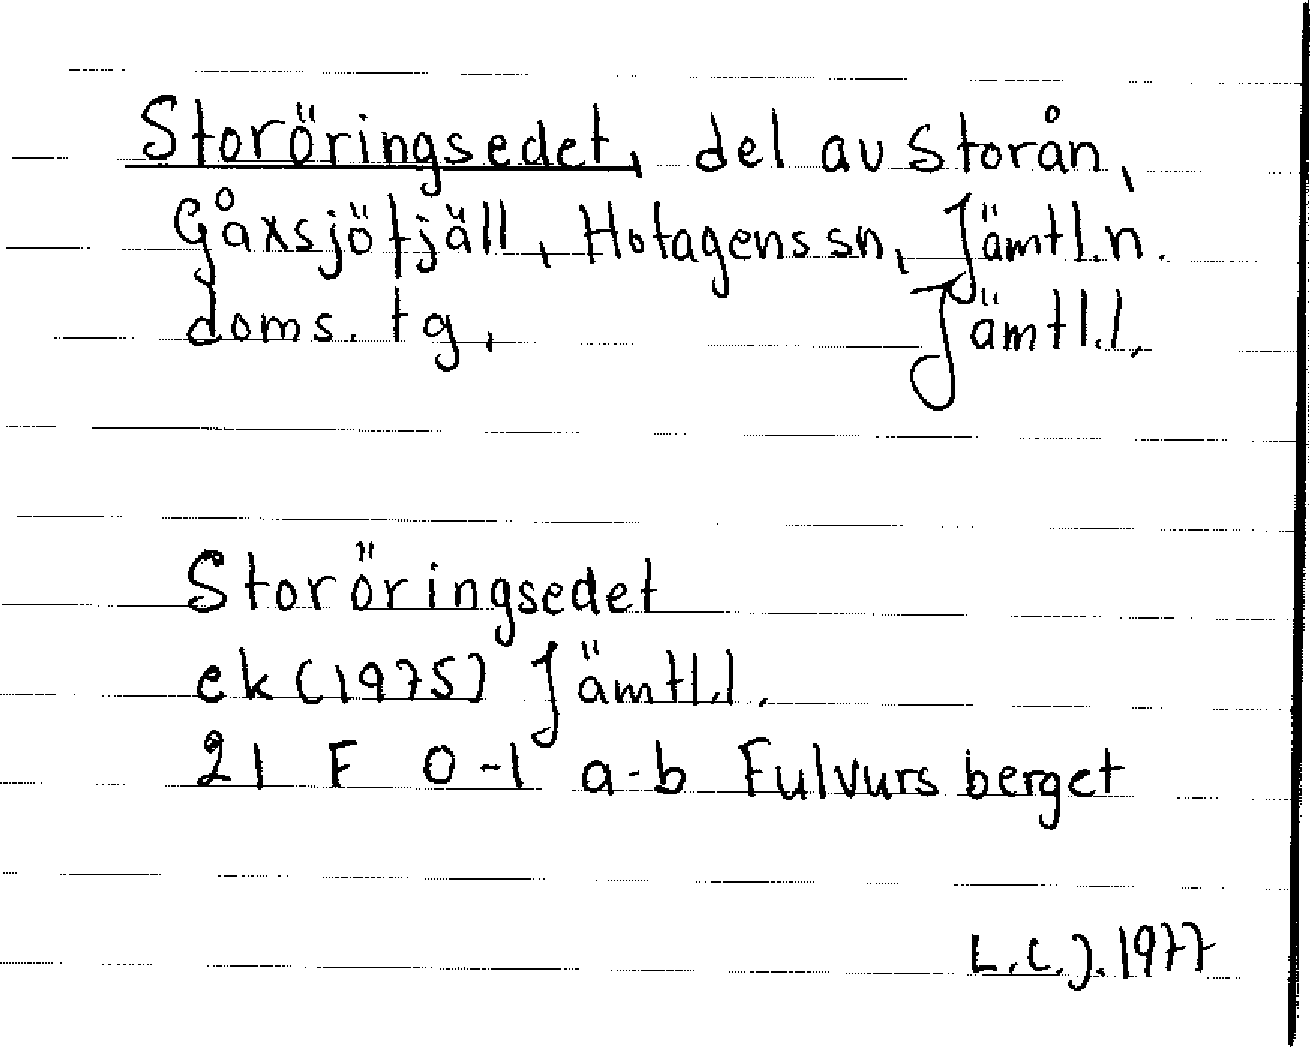 Storöringsedet, del av Storån,
Gåxsjöfjäll, Hotagens sn, Jämtl.n.
doms. tg, Jämtl.l,
Storöringsedet
ek (1975) Jämtl.l.
21 F 0-1 a-b Fulvurs berget
L.C.J. 1977